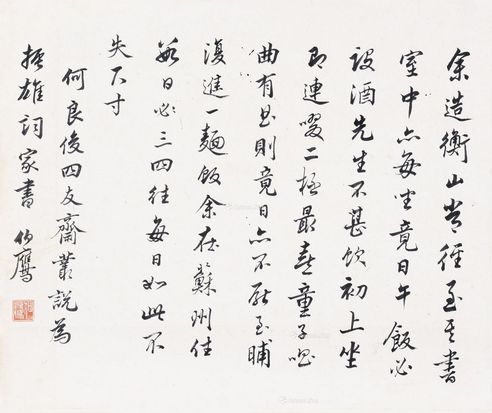 余造衡山常徑至其書
室中亦每坐竟日午飯必
設酒先生不甚飲初上坐
即連啜二桮最喜童子唱
曲有曲則竟日亦不厭至晡
復進一麵飯余在蘇州住
數日必三四往每日如此不
失尺寸
何良俊四友齋叢說為
振雄詞家書 伯鷹